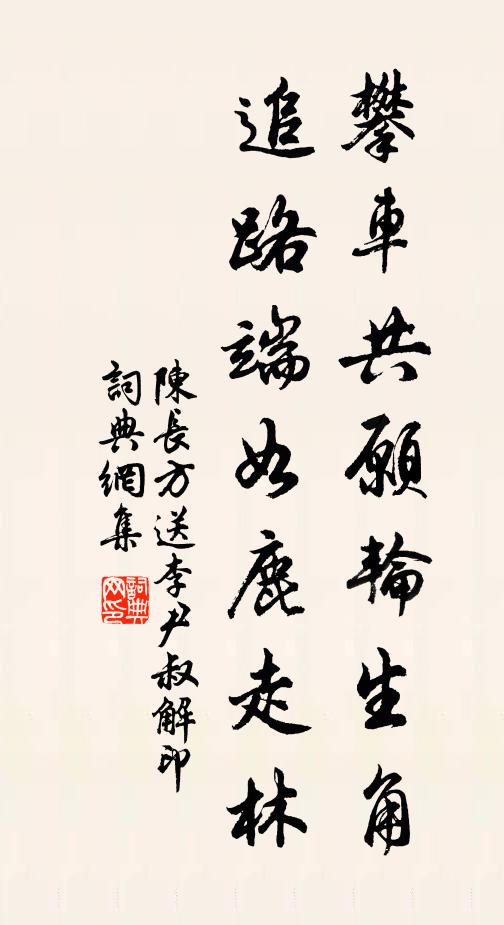 攀車共願輪生角
追路端如鹿走林
陳長方送李尹叔解印
詞典網集